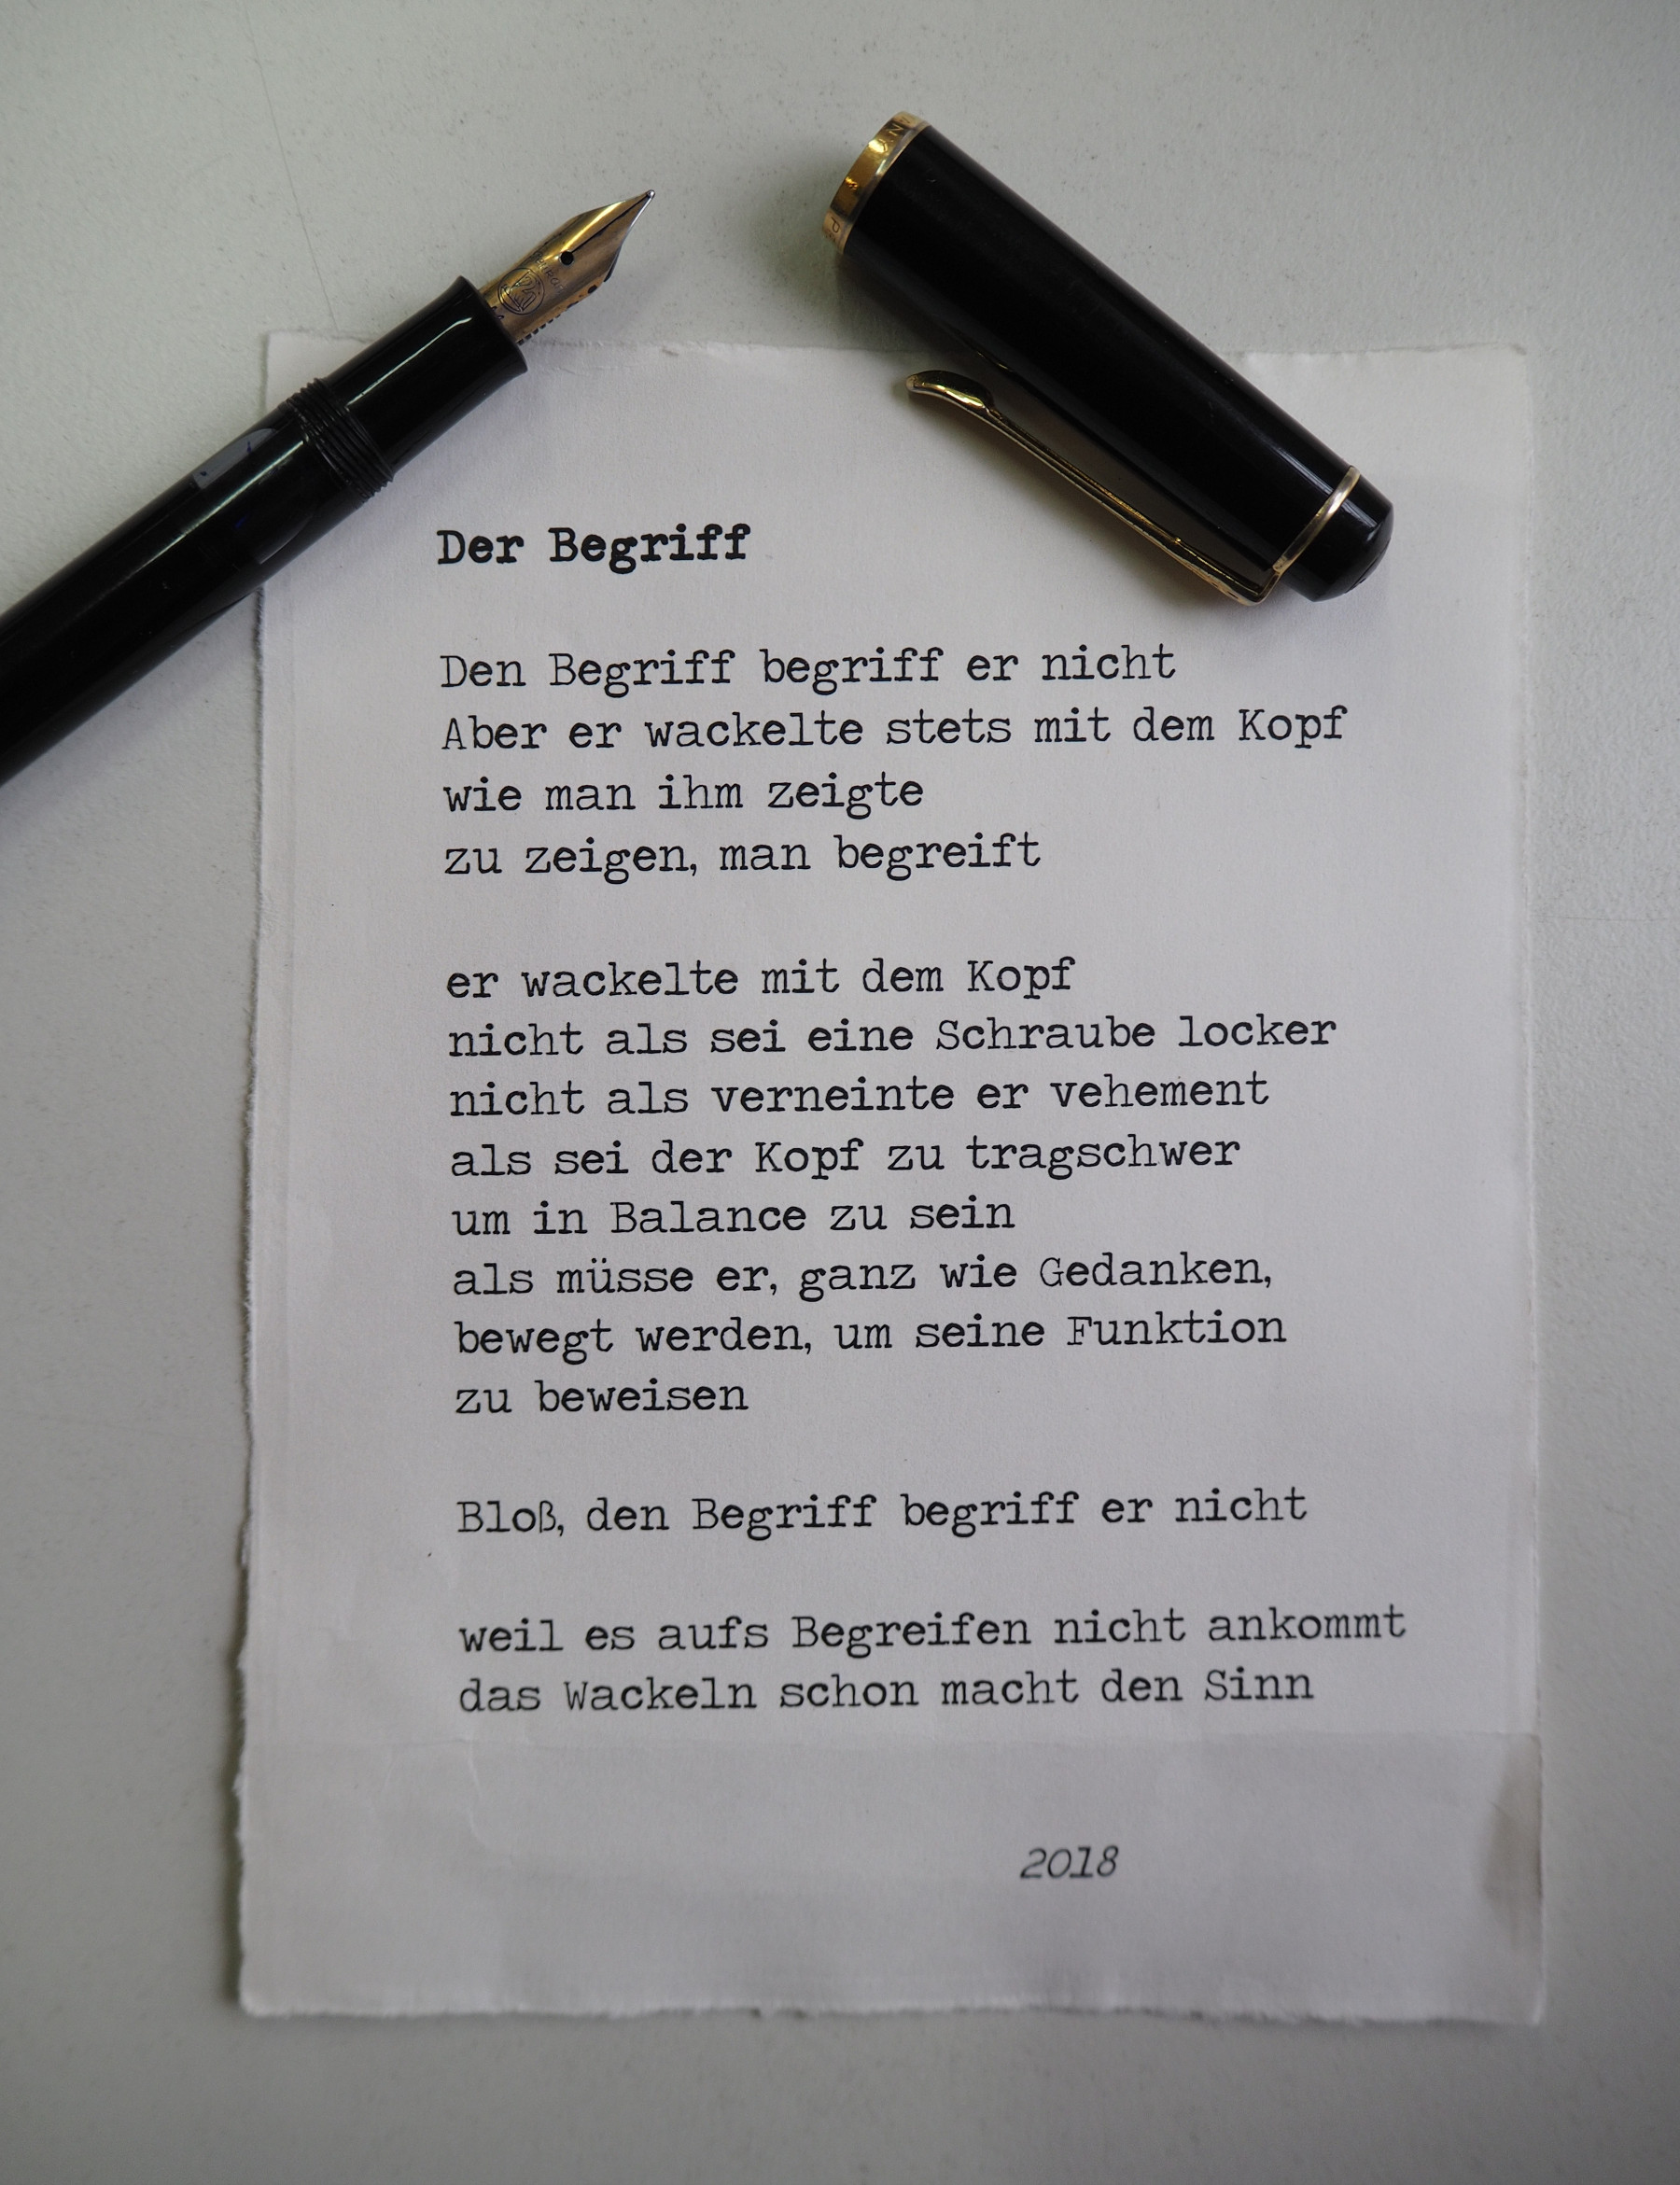 Der Begriff
Den Begriff begriff er nicht
Aber er wackelte stets mit dem Kopf
wie man ihm zeigte
zu zeigen, man begreift
er wackelte mit dem Kopf
nicht als sei eine Schraube locker
nicht als verneinte er vehement
als sei der Kopf zu tragschwer
um in Balance zu sein
als müsse er, ganz wie Gedanken,
bewegt werden, um seine Funktion
zu beweisen
Bloß, den Begriff begriff er nicht
weil es aufs Begreifen nicht ankommt
das Wackeln schon macht den Sinn
2018